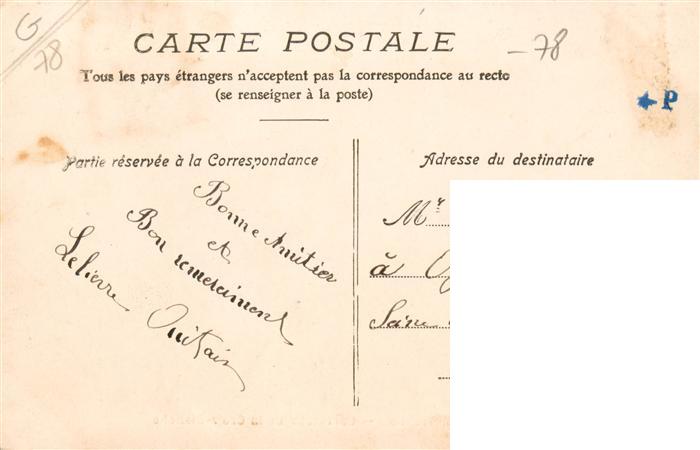 G
78
CARTE POSTALE
-78
Tous les pays étrangers n'acceptent pas la correspondance au recto
(se renseigner à la poste)
P
Partie réservée à la Correspondance
Adresse du destinataire
Bonne Amitier
et
Bon remerciment
Lelievre
Mr
à
Seine